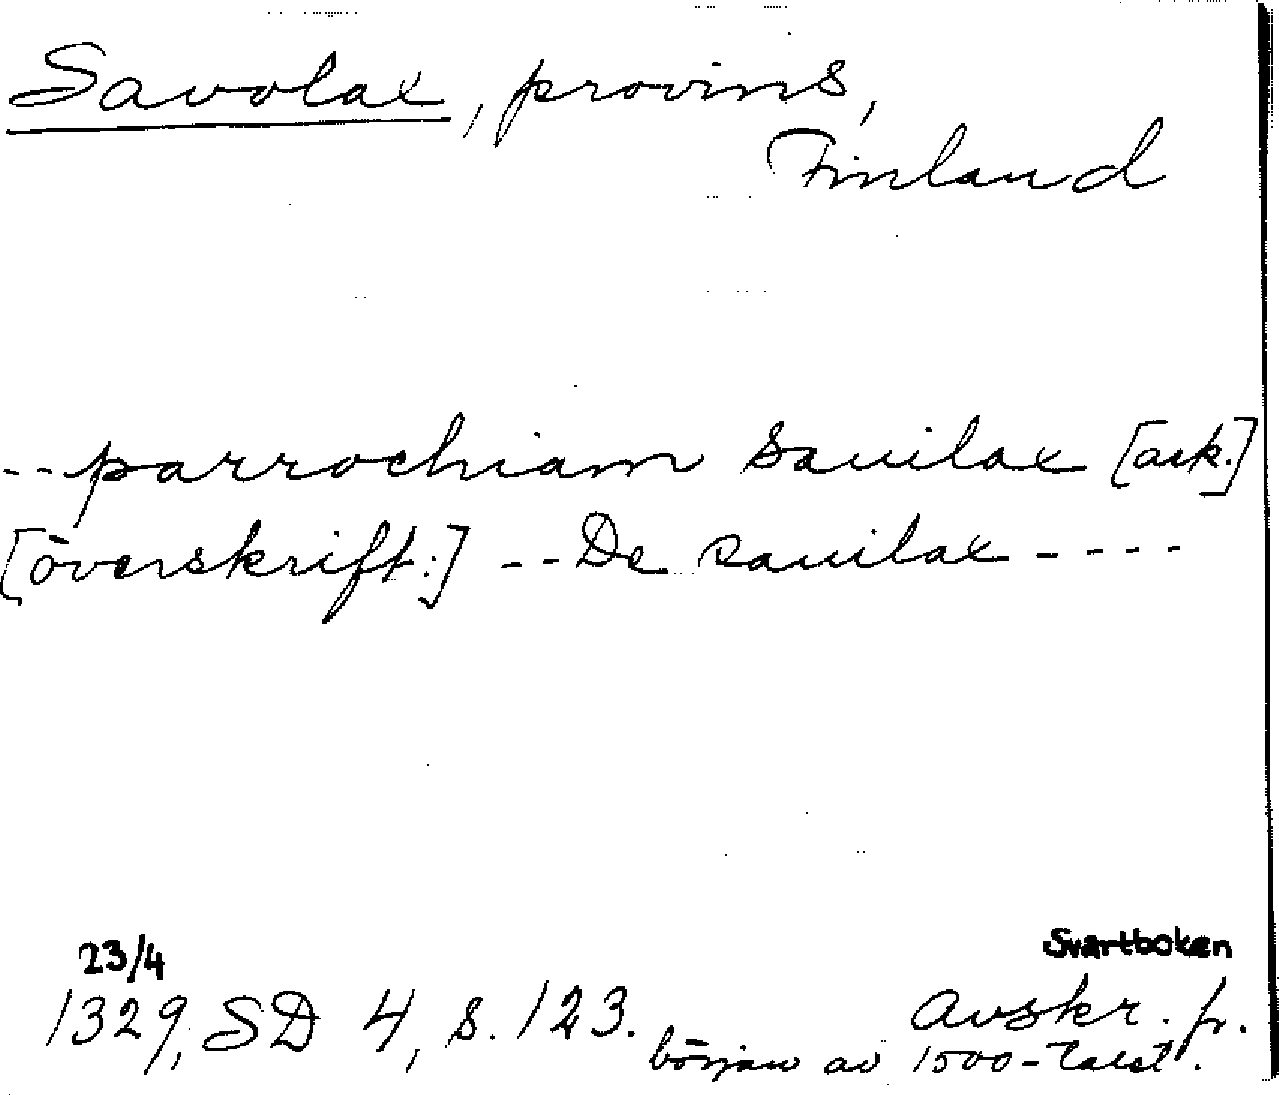 Savolax, provins,
Finland
--parrochiam sauilax [ack.]
[överskrift:] --De sauilax ----
23/4
1329, SD 4, s. 123.
Svartboken
Avskr. fr.
början av 1500-talet.